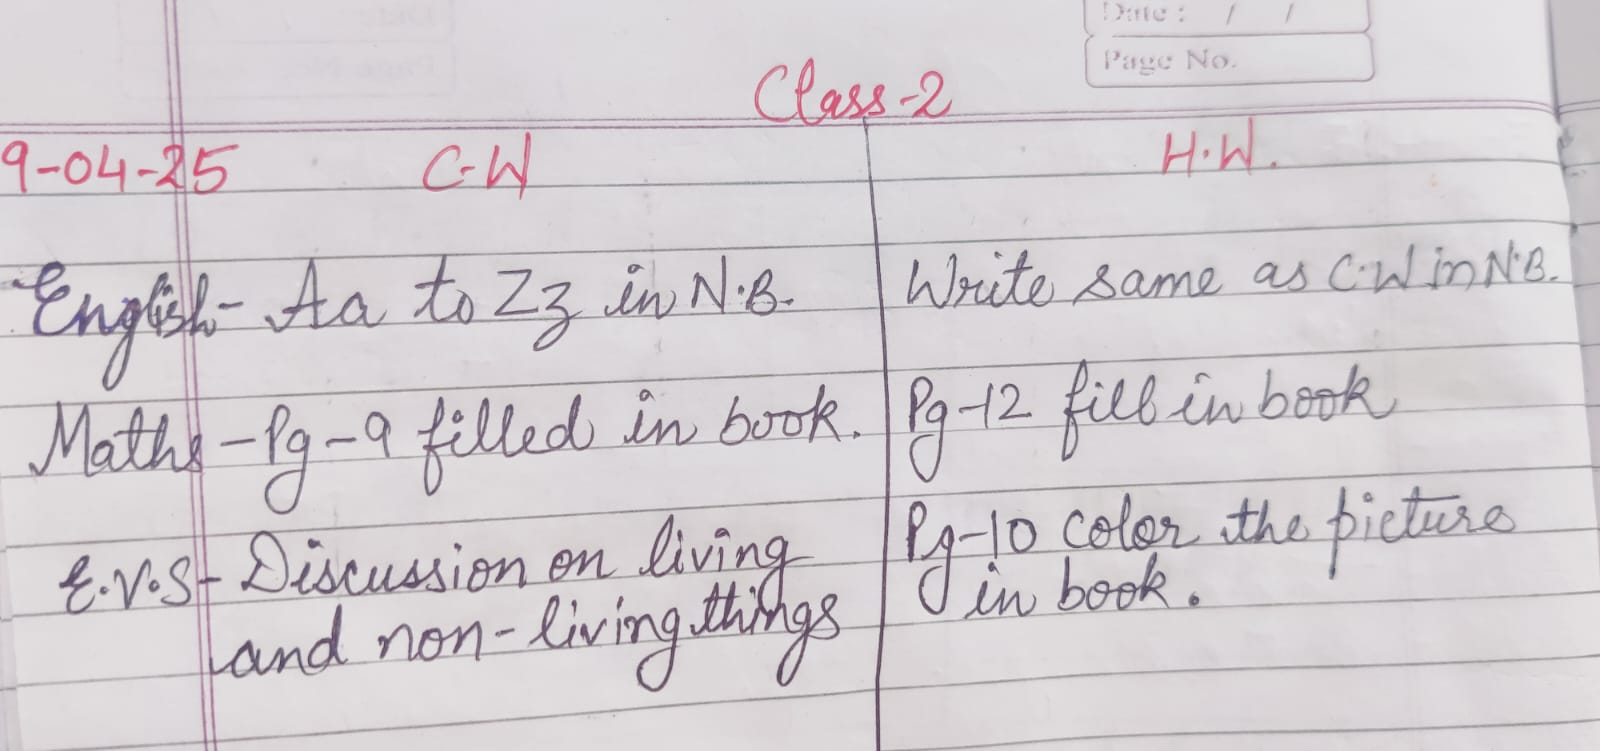 Date : / /
Page No.
Class-2
9-04-25 C-W H.W.
English- Aa to Zz in N.B. Write same as C.W in N.B.
Maths-Pg-9 filled in book. Pg-12 fill in book
E.V.S- Discussion on living Pg-10 color the picture
and non-living things in book.